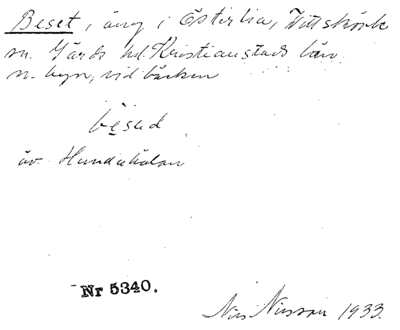 Beset, äng i Österlia, Vittskövle
sn. Gärds hd. Kristianstads län
n. byn, vid bäcken
besed
äv. Hundahålan
Nr 5340.
Nils Nilsson 1933.